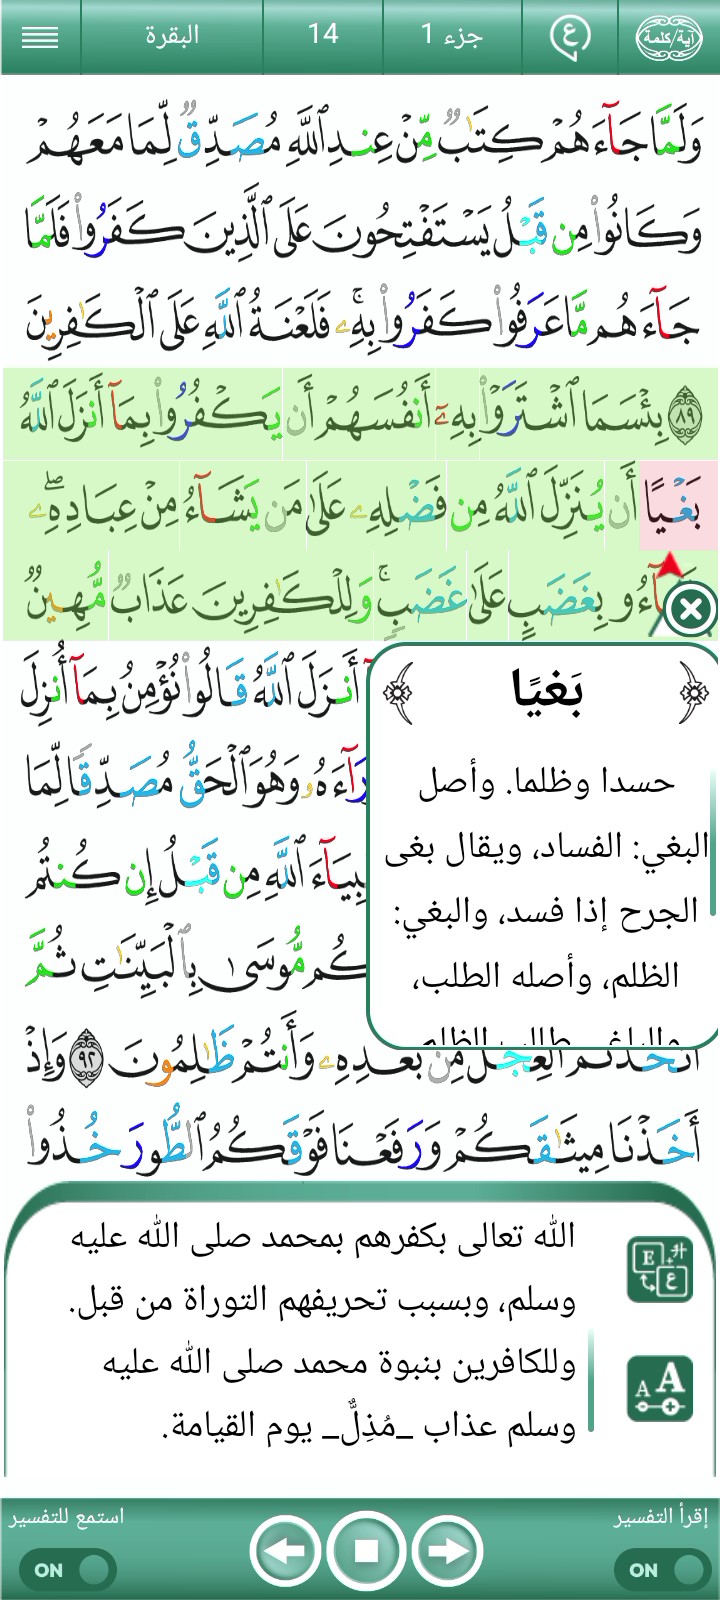 آية/كلمة
ع
جزء 1
14
البقرة
وَلَمَّا جَآءَهُمْ كِتَٰبٌ مِّنْ عِندِ ٱللَّهِ مُصَدِّقٌ لِّمَا مَعَهُمْ
وَكَانُوا۟ مِن قَبْلُ يَسْتَفْتِحُونَ عَلَى ٱلَّذِينَ كَفَرُوا۟ فَلَمَّا
جَآءَهُم مَّا عَرَفُوا۟ كَفَرُوا۟ بِهِۦ ۚ فَلَعْنَةُ ٱللَّهِ عَلَى ٱلْكَٰفِرِينَ
٨٩ بِئْسَمَا ٱشْتَرَوْا۟ بِهِۦٓ أَنفُسَهُمْ أَن يَكْفُرُوا۟ بِمَآ أَنزَلَ ٱللَّهُ
بَغْيًا أَن يُنَزِّلَ ٱللَّهُ مِن فَضْلِهِۦ عَلَىٰ مَن يَشَآءُ مِنْ عِبَادِهِۦ ۖ
بِغَضَبٍ عَلَىٰ غَضَبٍ ۚ وَلِلْكَٰفِرِينَ عَذَابٌ مُّهِينٌ
أَنزَلَ ٱللَّهُ قَالُوا۟ نُؤْمِنُ بِمَآ أُنزِلَ
وَهُوَ ٱلْحَقُّ مُصَدِّقًا لِّمَا
ٱللَّهِ مِن قَبْلُ إِن كُنتُم
مُّوسَىٰ بِٱلْبَيِّنَٰتِ ثُمَّ
ٱتَّخَذْتُمُ ٱلْعِجْلَ مِنۢ بَعْدِهِۦ وَأَنتُمْ ظَٰلِمُونَ ٩٢ وَإِذْ
أَخَذْنَا مِيثَٰقَكُمْ وَرَفَعْنَا فَوْقَكُمُ ٱلطُّورَ خُذُوا۟
بَغيًا
حسدا وظلما. وأصل
البغي: الفساد، ويقال بغى
الجرح إذا فسد، والبغي:
الظلم، وأصله الطلب،
الله تعالى بكفرهم بمحمد صلى الله عليه
وسلم، وبسبب تحريفهم التوراة من قبل.
وللكافرين بنبوة محمد صلى الله عليه
وسلم عذاب _مُذِلٌّ_ يوم القيامة.
إقرأ التفسير
استمع للتفسير
ON
ON